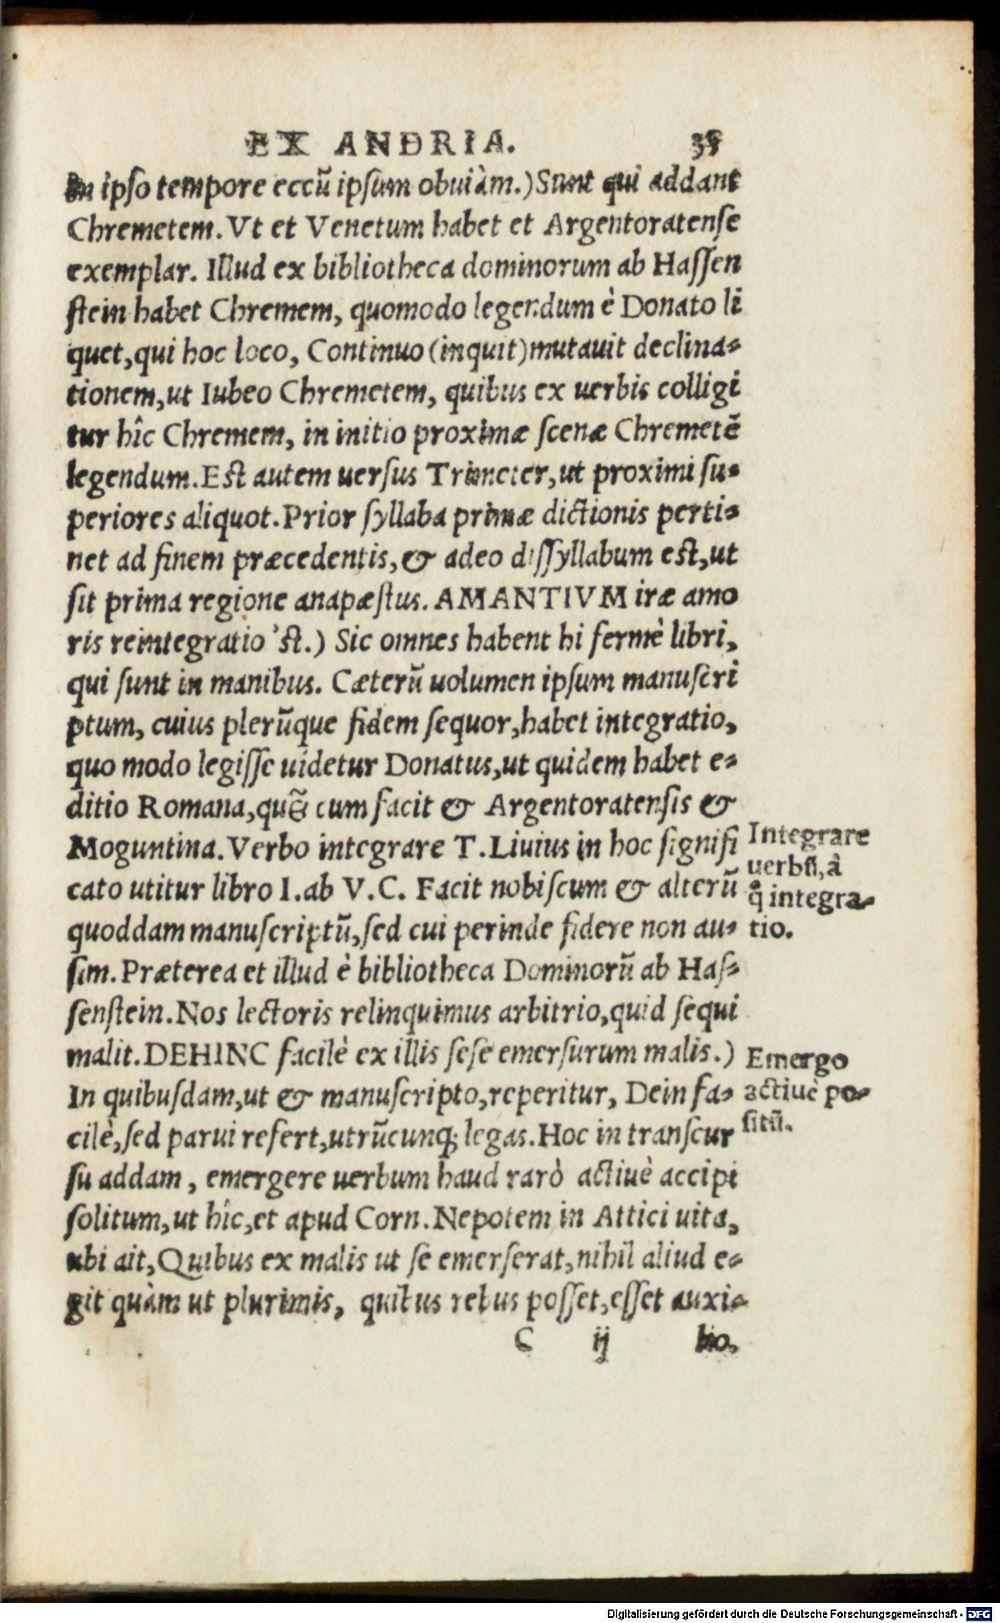 EX ANDRIA. 35
In ipso tempore eccũ ipsum obuiàm.) Sunt qui addant
Chremetem. Vt et Venetum habet et Argentoratense
exemplar. Illud ex bibliotheca dominorum ab Hassen
stein habet Chremem, quomodo legendum è Donato li
quet, qui hoc loco, Continuo (inquit) mutauit declina-
tionem, ut Iubeo Chremetem, quibus ex uerbis colligi
tur hîc Chremem, in initio proximæ scenæ Chremetẽ
legendum. Est autem uersus Trimeter, ut proximi su-
periores aliquot. Prior syllaba primæ dictionis perti-
net ad finem præcedentis, & adeo dissyllabum est, ut
sit prima regione anapæstus. AMANTIVM iræ amo
ris reintegratio 'st.) Sic omnes habent hi fermè libri,
qui sunt in manibus. Cæterũ uolumen ipsum manuscri
ptum, cuius plerũque fidem sequor, habet integratio,
quo modo legisse uidetur Donatus, ut quidem habet e-
ditio Romana, quẽ cum facit & Argentoratensis &
Moguntina. Verbo integrare T. Liuius in hoc signifi
cato utitur libro I. ab V.C. Facit nobiscum & alterũ
quoddam manuscriptũ, sed cui perinde fidere non au-
sim. Præterea et illud è bibliotheca Dominorũ ab Has-
senstein. Nos lectoris relinquimus arbitrio, quid sequi
malit. DEHINC facilè ex illis sese emersurum malis.)
In quibusdam, ut & manuscripto, reperitur, Dein fa-
cilè, sed parui refert, utrũcunq; legas. Hoc in transcur
su addam, emergere uerbum haud rarò actiuè accipi
solitum, ut hîc, et apud Corn. Nepotem in Attici uita,
ubi ait, Quibus ex malis ut se emerserat, nihil aliud e-
git quàm ut plurimis, quibus rebus posset, esset auxi-
C ij lio,
Integrare
uerbũ, à
q̃ integra-
tio.
Emergo
actiuè po-
sitũ.
Digitalisierung gefördert durch die Deutsche Forschungsgemeinschaft - DFG